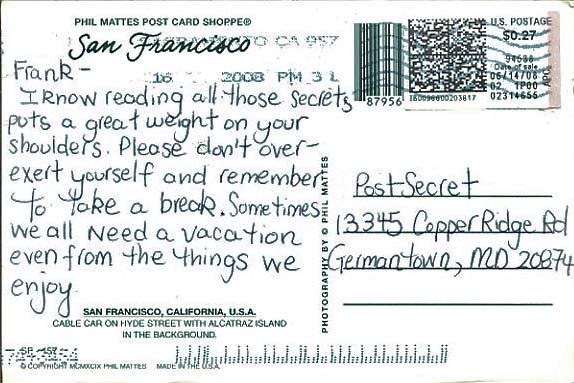 PHIL MATTES POST CARD SHOPPE®
San Francisco
CA 957
16 2008 PM 3 L
U.S. POSTAGE
$0.27
Date of sale
06/14/08
02 1P00
02314655
87956
Frank-
I know reading all those secrets
puts a great weight on your
shoulders. Please don't over-
exert yourself and remember
to take a break. Sometimes
we all need a vacation
even from the things we
enjoy.
PostSecret
13345 Copper Ridge Rd
Germantown, MD 20874
PHOTOGRAPHY BY © PHIL MATTES
SAN FRANCISCO, CALIFORNIA, U.S.A.
CABLE CAR ON HYDE STREET WITH ALCATRAZ ISLAND
IN THE BACKGROUND.
© COPYRIGHT MCMXCIX PHIL MATTES MADE IN THE U.S.A.